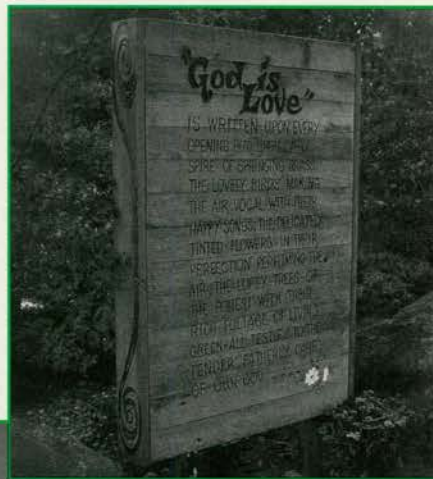 "God is
Love"
IS WRITTEN UPON EVERY
OPENING BUD UPON EVERY
SPIRE OF SPRINGING GRASS.
THE LOVELY BIRDS MAKING
THE AIR VOCAL WITH THEIR
HAPPY SONGS, THE DELICATELY
TINTED FLOWERS IN THEIR
PERFECTION PERFUMING THE
AIR, THE LOFTY TREES OF
THE FOREST WITH THEIR
RICH FOLIAGE OF LIVING
GREEN-ALL TESTIFY TO THE
TENDER, FATHERLY CARE
OF OUR GOD
#1